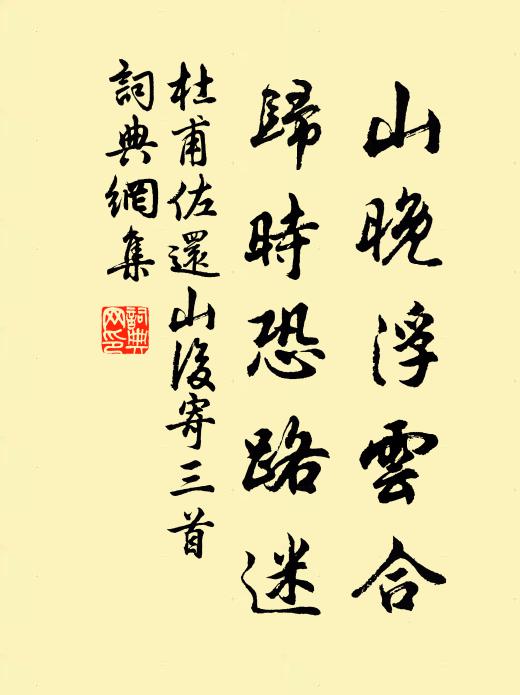 山晚浮雲合
歸時恐路迷
杜甫佐還山後寄三首
詞典網集
詞典网印